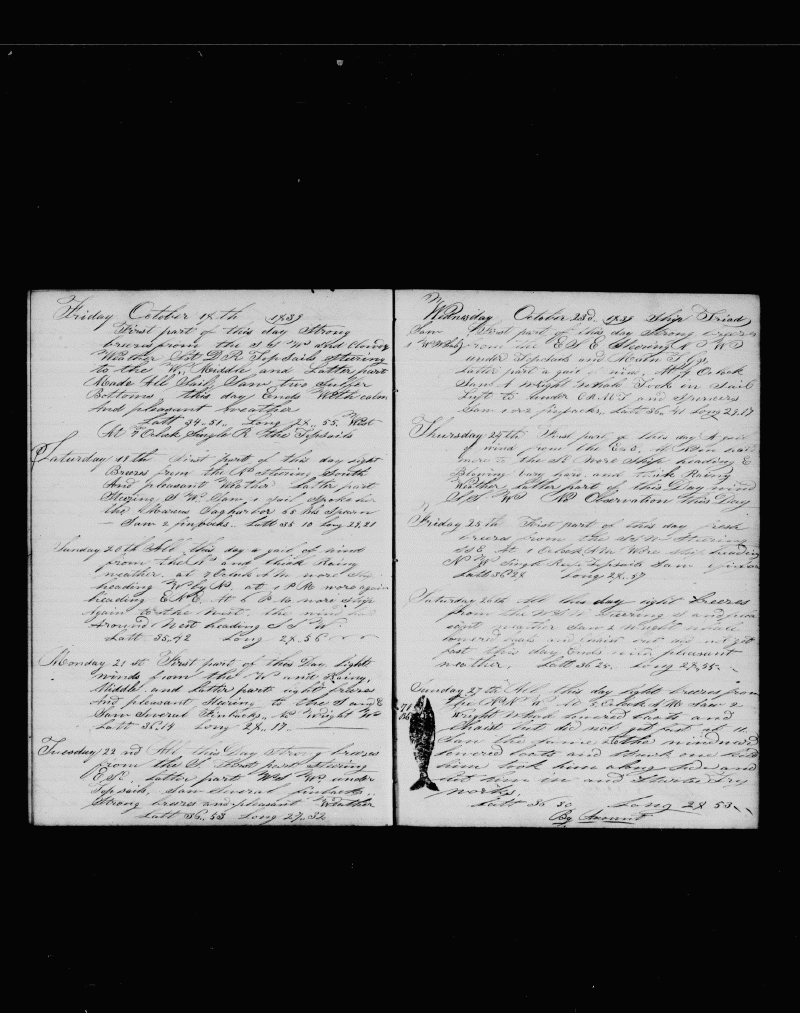 Friday October 18th 1839
First part of this day Strong
breezes from the S S W And Cloudy
Weather Set D R Top Sails stearing
to the W. Middle and Latter part
Made All Sail Saw two Sulfer
Bottoms this day Ends With calm
And pleasant weather
Latt 34..51. Long 28..55 West
At 7 Oclock Single R the Topsails
Saturday 19th First part of this day light
Breezes from the N Stearing South
And pleasant Weather Latter part
Stearing S W Saw a Sail spoke her
the Marcus Sagharbor 65 bls Sperm
Saw 2 finbacks.. Latt 35 10 Long 28,21
Sunday 20th All this day a gail of wind
from the N and thick Rainy
weather. at 9 Oclock A M wore Ship
heading W by N. at 1 P M wore again
heading E N E At 6 P M wore Ship
Again to the West. the wind
Around West heading S S W.
Latt 35..42 Long 28..56
Monday 21st First part of this Day light
winds from the W and Rainy,
Middle and Latter part light breezes
And pleasant Stearing to the S and E
Saw Several Finbacks, No Wright W
Latt 36.14 Long 28..17.
Tuesday 22nd All this Day Strong breezes
from the S First part stearing
E S E. Latter part W S W under
Top sails, Saw Several finbacks..
Strong breezes and pleasant Weather
Latt 36..53 Long 27..32
Wednesday October 23d. 1839 Ship Triad
Saw First part of this day Strong breezes
1 W Whale from the E S E Stearing
under Topsails and Main T G
Latter part a gail of wind, At 9 Oclock
Saw A Wright Whale Took in Sail
Left to under and Spencers
Saw 1 or 2 finbacks, Latt 36..41 Long 28.17
Thursday 24th First part of this day A gail
of wind from the
more to the S E Wore Ship heading E
Blowing vary hard and thick Rainy
Weather latter part of this Day wind
S S W No Observation this Day
Friday 25th First part of this day fresh
breezes from the S S W Stearing
S S E At 1 Oclock P M Wore Ship heading
N W Single Reef Topsails Saw
Latt 36 28 Long 28.37
Saturday 26th All this day light breezes
from the Stearing S and
light weather Saw 2 Wright whale
lowered boats and chaised but did not get
fast this day Ends with pleasant
weather, Latt 36 25. Long 28.55.
Sunday 27th All this day light breezes from
the N N W At Oclock A M Saw 2
Wright Whale lowered boats and
Chaisd but did not get fast at 11
Saw the Same to the windward
lowered boats and struck one killed
him took him along side and
cut him in and Started Try
works,
Latt 36 50 Long 28 53
By Account